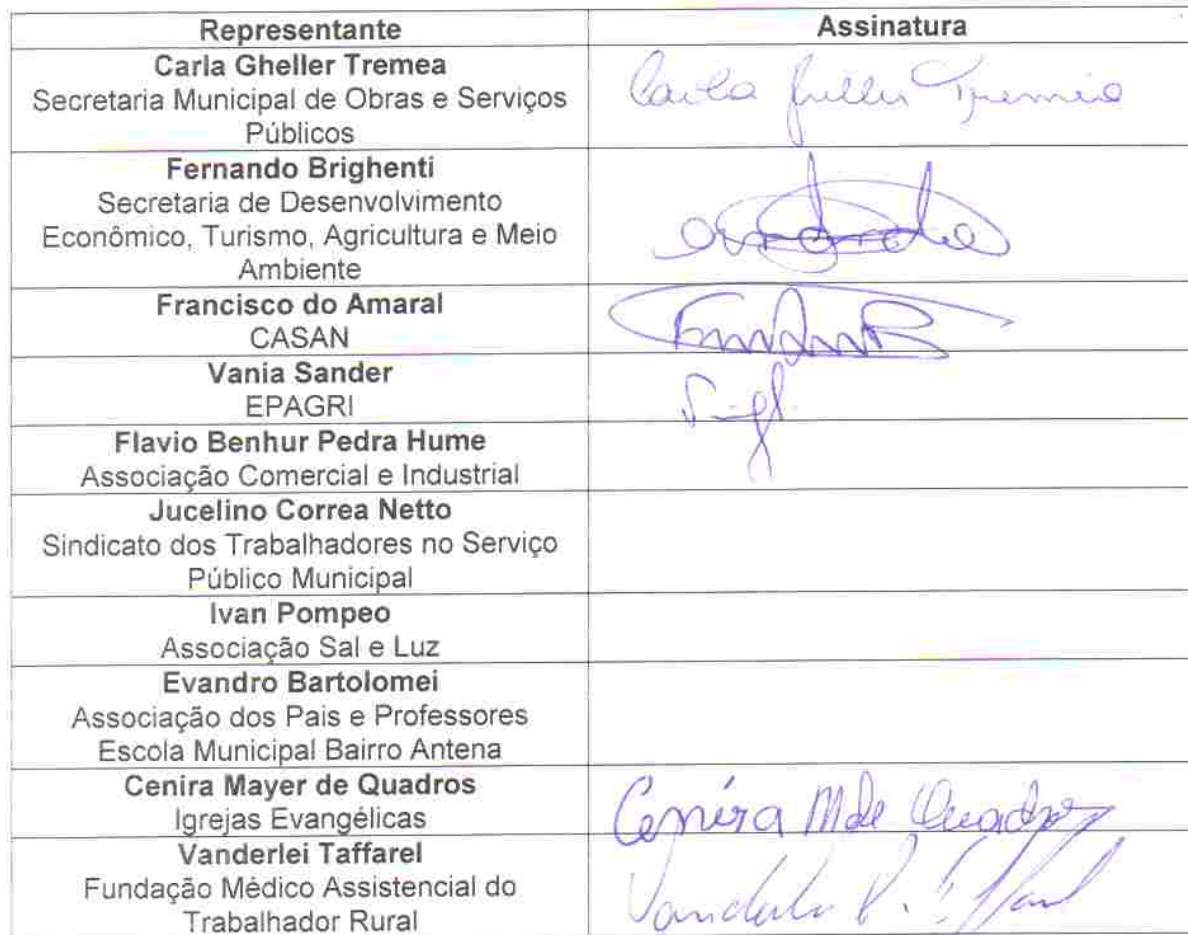 Representante Assinatura
Carla Gheller Tremea
Secretaria Municipal de Obras e Serviços
Públicos
Carla Tremea
Fernando Brighenti
Secretaria de Desenvolvimento
Econômico, Turismo, Agricultura e Meio
Ambiente
Francisco do Amaral
CASAN
Vania Sander
EPAGRI
Flavio Benhur Pedra Hume
Associação Comercial e Industrial
Jucelino Correa Netto
Sindicato dos Trabalhadores no Serviço
Público Municipal
Ivan Pompeo
Associação Sal e Luz
Evandro Bartolomei
Associação dos Pais e Professores
Escola Municipal Bairro Antena
Cenira Mayer de Quadros
Igrejas Evangélicas
Cenira M de Quadros
Vanderlei Taffarel
Fundação Médico Assistencial do
Trabalhador Rural